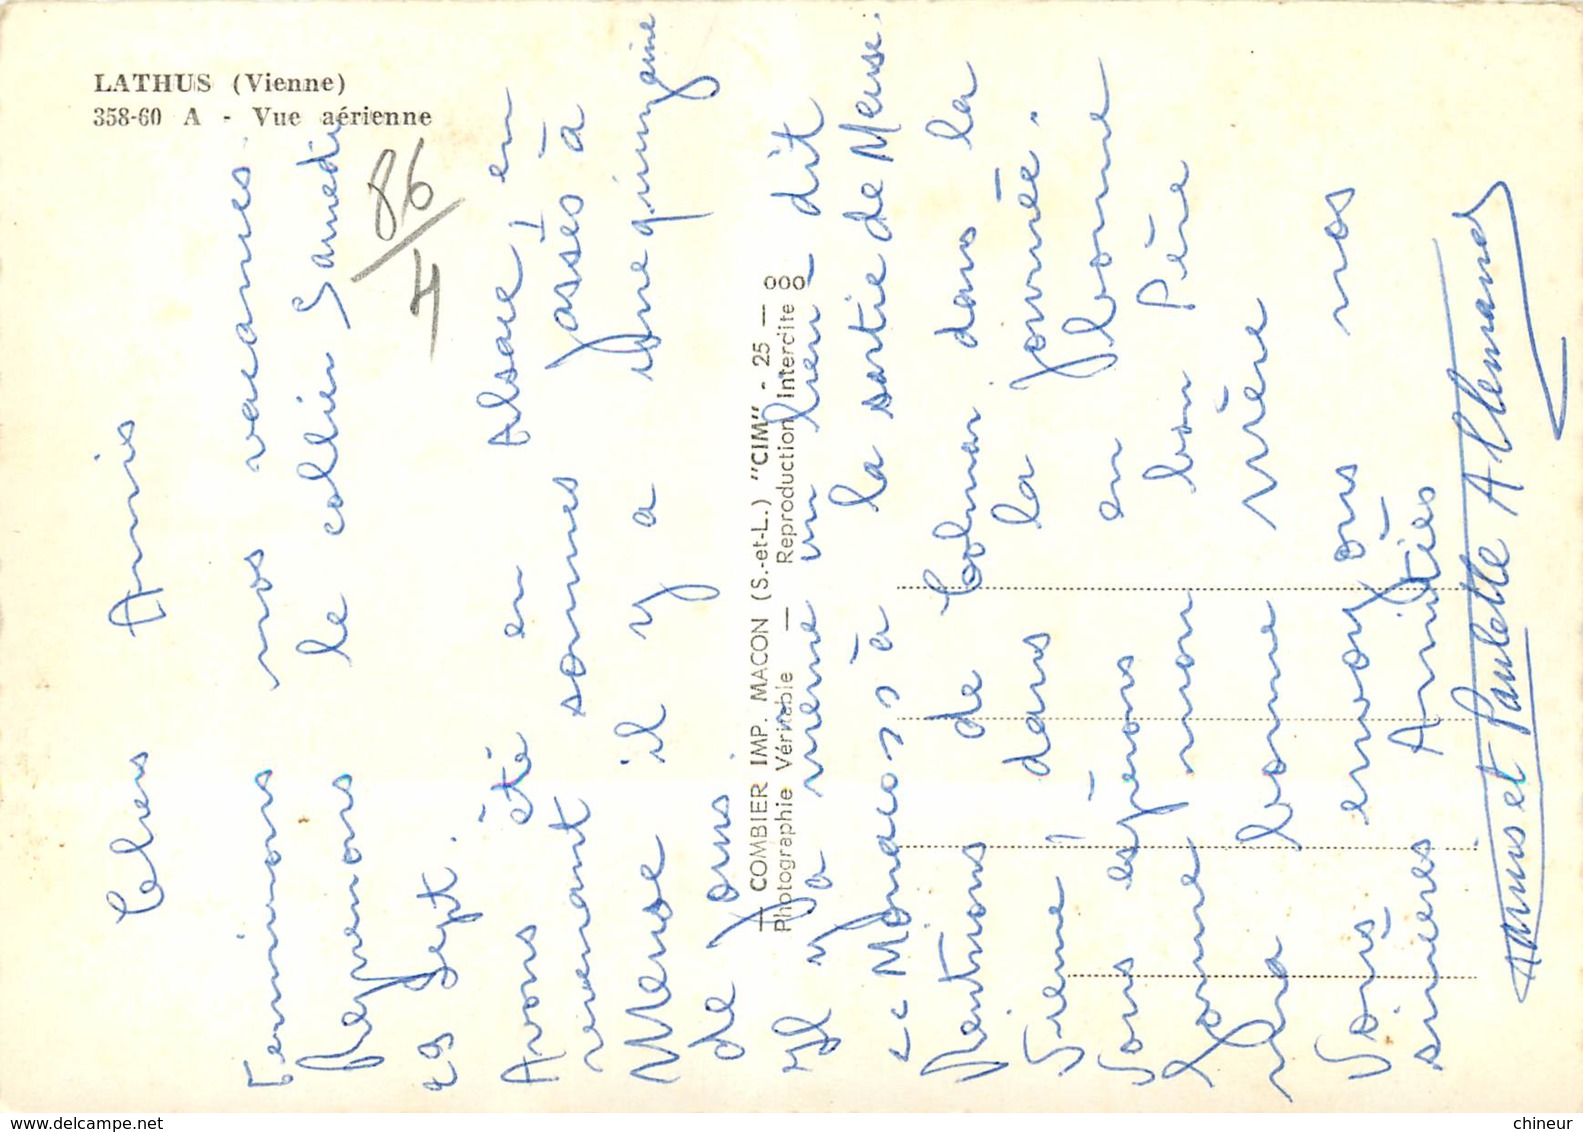 LATHUS (Vienne)
358-60 A - Vue aérienne
86/4
Chers Amis
Terminons nos vacances.
Reprenons le collier Samedi
Sept.
Avons été en Alsace, en
revenant sommes passés à
Meuse il y a une quinzaine
de jours.
Il y a même un lieu-dit
" Monaco" à la sortie de Meuse.
Rentrons de Colmar dans la
dans la journée.
Vous espérons en bonne
forme mon bon Père
La bonne Mère
Vous envoyons nos
sincères Amitiés
et Paulette Allemand
COMBIER IMP. MACON (S.-et-L.) "CIM" - 25 -
Photographie Véritable — Reproduction Interdite
chineur